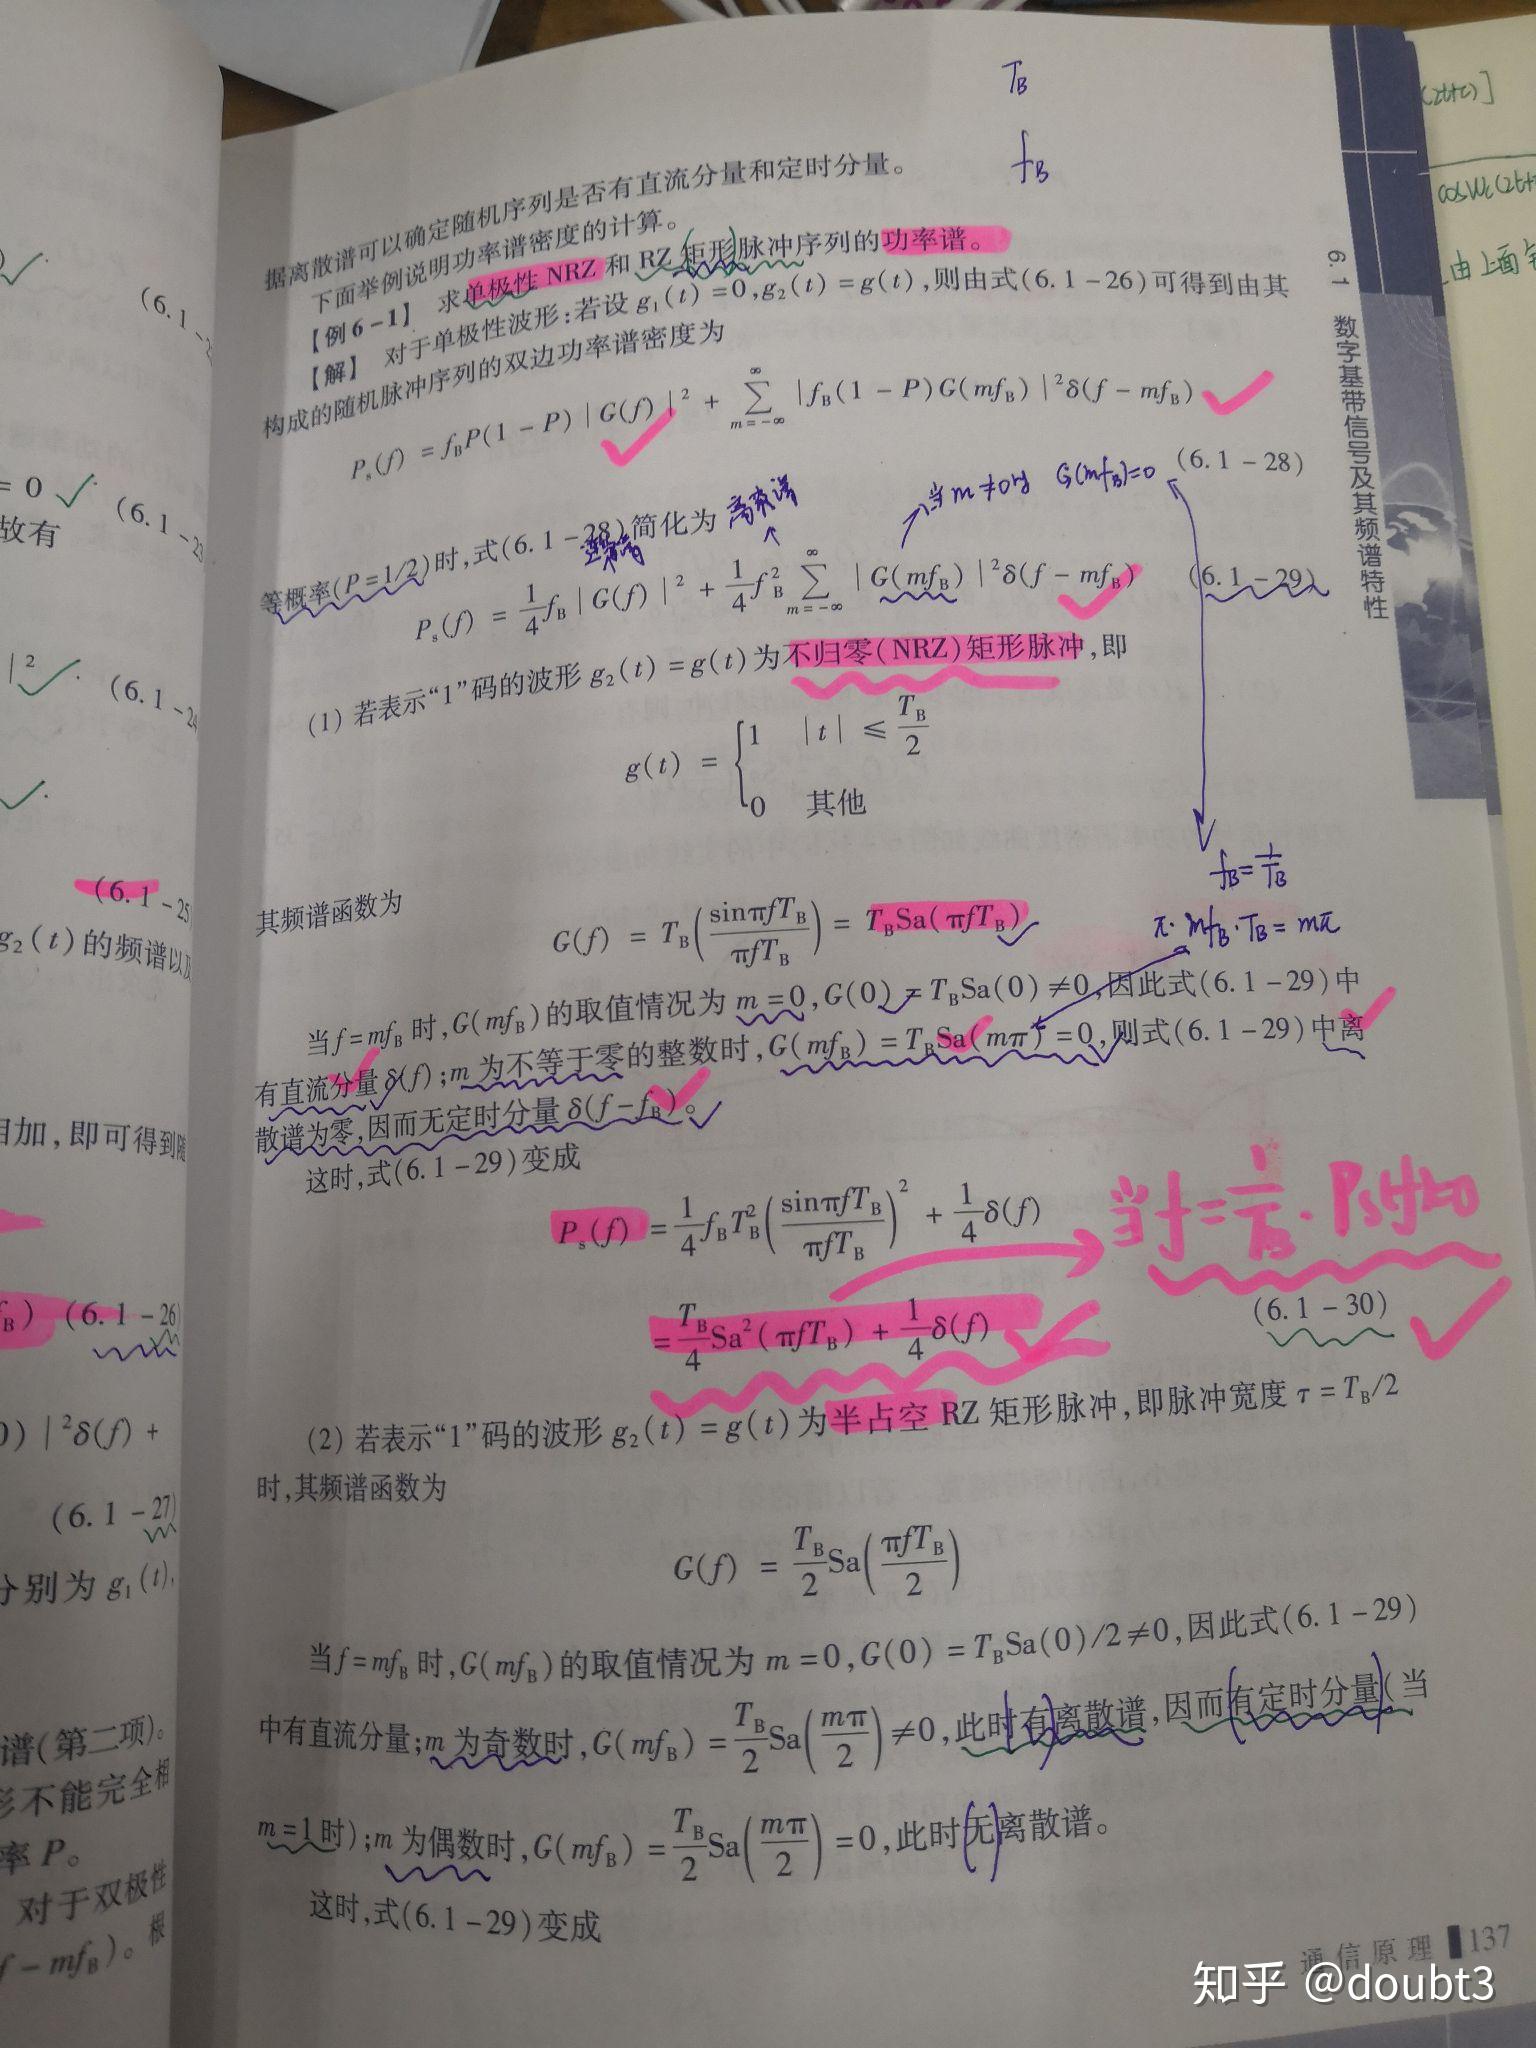 T_B
f_B
据离散谱可以确定随机序列是否有直流分量和定时分量。
下面举例说明功率谱密度的计算。
【例6-1】 求单极性NRZ和RZ矩形脉冲序列的功率谱。
【解】 对于单极性波形:若设g₁(t)=0,g₂(t)=g(t),则由式(6.1-26)可得到由其
构成的随机脉冲序列的双边功率谱密度为
P_s(f) = f_B P(1-P)|G(f)|² + \sum_{m=-∞}^{∞} |f_B(1-P)G(mf_B)|²δ(f-mf_B)
(6.1-28)
当m≠0时 G(mf_B)=0
离散谱
等概率(P=1/2)时,式(6.1-28)简化为
P_s(f) = \frac{1}{4}f_B|G(f)|² + \frac{1}{4}f_B² \sum_{m=-∞}^{∞} |G(mf_B)|²δ(f-mf_B) (6.1-29)
(1) 若表示“1”码的波形g₂(t)=g(t)为不归零(NRZ)矩形脉冲,即
g(t) = { 1 |t| ≤ \frac{T_B}{2}
0 其他
f_B=\frac{1}{T_B}
其频谱函数为
G(f) = T_B(\frac{sinπfT_B}{πfT_B}) = T_B Sa(πfT_B)
π·mf_B·T_B=mπ
当f=mf_B时,G(mf_B)的取值情况为m=0,G(0)=T_B Sa(0)≠0,因此式(6.1-29)中
有直流分量δ(f);m为不等于零的整数时,G(mf_B)=T_B Sa(mπ)=0,则式(6.1-29)中离
散谱为零,因而无定时分量δ(f-f_B)。
这时,式(6.1-29)变成
P_s(f) = \frac{1}{4}f_B T_B²(\frac{sinπfT_B}{πfT_B})² + \frac{1}{4}δ(f)
当f=\frac{1}{T_B}. Ps(f)=0
=\frac{T_B}{4}Sa²(πfT_B) + \frac{1}{4}δ(f) (6.1-30)
(2) 若表示“1”码的波形g₂(t)=g(t)为半占空RZ矩形脉冲,即脉冲宽度τ=T_B/2
时,其频谱函数为
G(f) = \frac{T_B}{2}Sa(\frac{πfT_B}{2})
当f=mf_B时,G(mf_B)的取值情况为m=0,G(0)=T_B Sa(0)/2≠0,因此式(6.1-29)
中有直流分量;m为奇数时,G(mf_B)=\frac{T_B}{2}Sa(\frac{mπ}{2})≠0,此时有离散谱,因而有定时分量(当
m=1时);m为偶数时,G(mf_B)=\frac{T_B}{2}Sa(\frac{mπ}{2})=0,此时无离散谱。
这时,式(6.1-29)变成
通信原理 137
6.1 数字基带信号及其频谱特性
= 0
故有
(6.1-25)
g₂(t)的频谱以及
相加,即可得到随
(6.1-26)
0)|²δ(f)+
(6.1-27)
分别为g₁(t),
谱(第二项)。
形不能完全相
率P。
对于双极性
f-mf_B)。根
cosWc(2t+
由上面
知乎 @doubt3